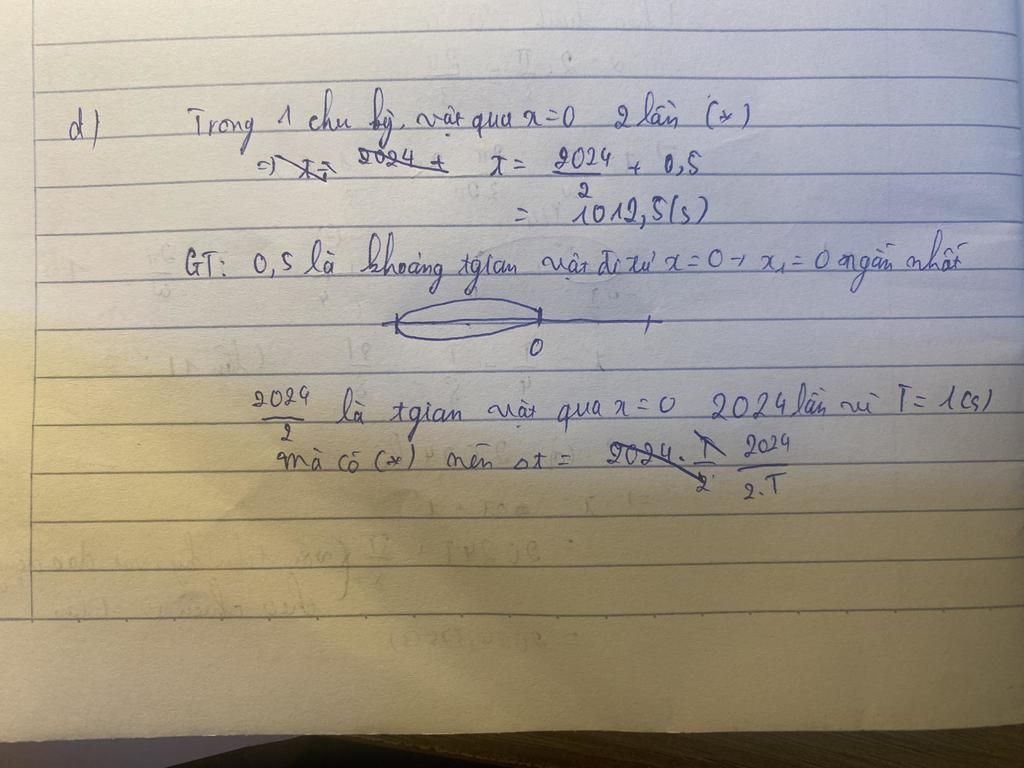 d) Trong 1 chu kỳ, vật qua x=0 2 lần (*)
=> t = 2024 + t = 2024/2 + 0,5
= 1012,5(s)
GT: 0,5 là khoảng tgian vật đi từ x=0 → x₁=0 ngắn nhất
0
2024/2 là tgian vật qua x=0 2024 lần vì T=1(s)
mà có (*) nên Δt = 2024. T/2 2024/2.T